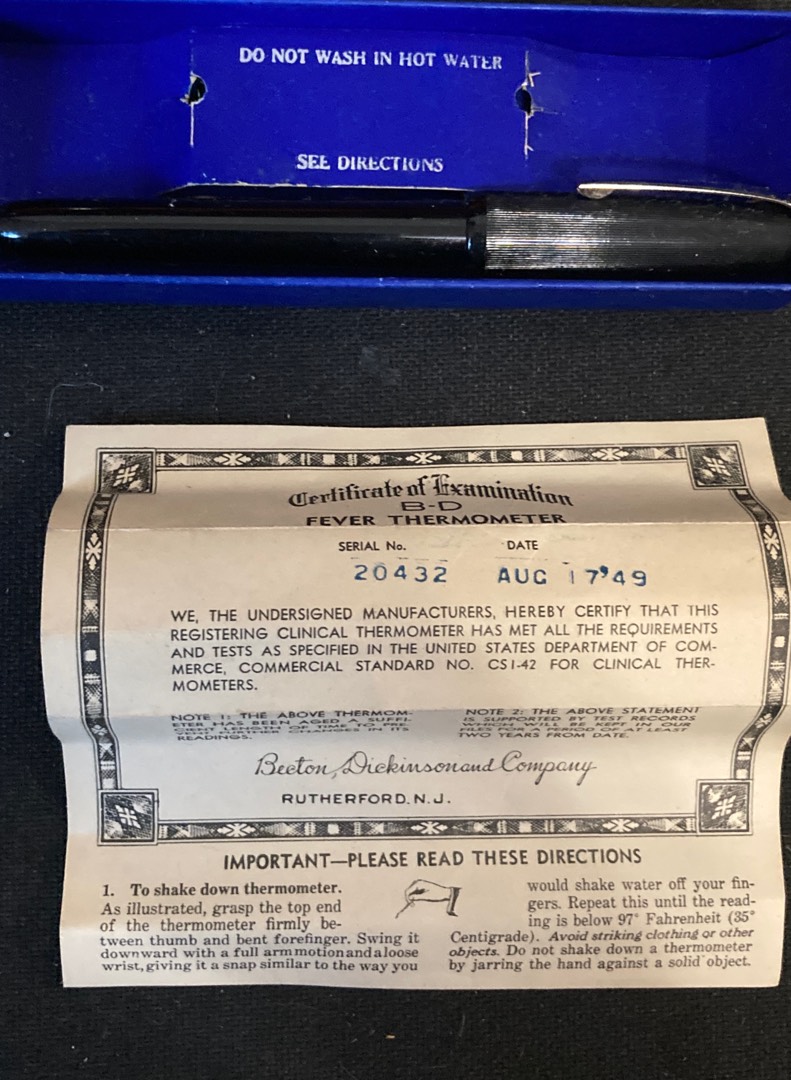 DO NOT WASH IN HOT WATER
SEE DIRECTIONS
Certificate of Examination
B-D
FEVER THERMOMETER
SERIAL No. DATE
20432 AUG 17'49
WE, THE UNDERSIGNED MANUFACTURERS, HEREBY CERTIFY THAT THIS
REGISTERING CLINICAL THERMOMETER HAS MET ALL THE REQUIREMENTS
AND TESTS AS SPECIFIED IN THE UNITED STATES DEPARTMENT OF COM-
MERCE, COMMERCIAL STANDARD NO. CS1-42 FOR CLINICAL THER-
MOMETERS.
NOTE 1: THE ABOVE THERMOM-
ETER HAS BEEN AGED A SUFFI-
CIENT LENGTH OF TIME TO PRE-
VENT FURTHER CHANGES IN ITS
READINGS.
NOTE 2: THE ABOVE STATEMENT
IS SUPPORTED BY TEST RECORDS
WHICH WILL BE KEPT IN OUR
FILES FOR A PERIOD OF AT LEAST
TWO YEARS FROM DATE.
Becton, Dickinson and Company
RUTHERFORD, N.J.
IMPORTANT—PLEASE READ THESE DIRECTIONS
1. To shake down thermometer.
As illustrated, grasp the top end
of the thermometer firmly be-
tween thumb and bent forefinger. Swing it
downward with a full arm motion and a loose
wrist, giving it a snap similar to the way you
would shake water off your fin-
gers. Repeat this until the read-
ing is below 97° Fahrenheit (35°
Centigrade). Avoid striking clothing or other
objects. Do not shake down a thermometer
by jarring the hand against a solid object.